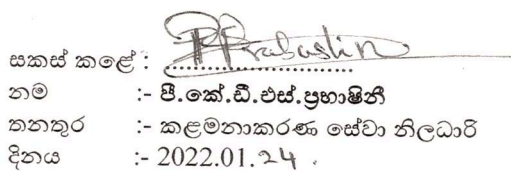 සකස් කළේ : ....................................
නම :- පී.කේ.ඩී.එස්.ප්‍රභාෂිනී
තනතුර :- කළමනාකරණ සේවා නිලධාරි
දිනය :- 2022.01.24 .